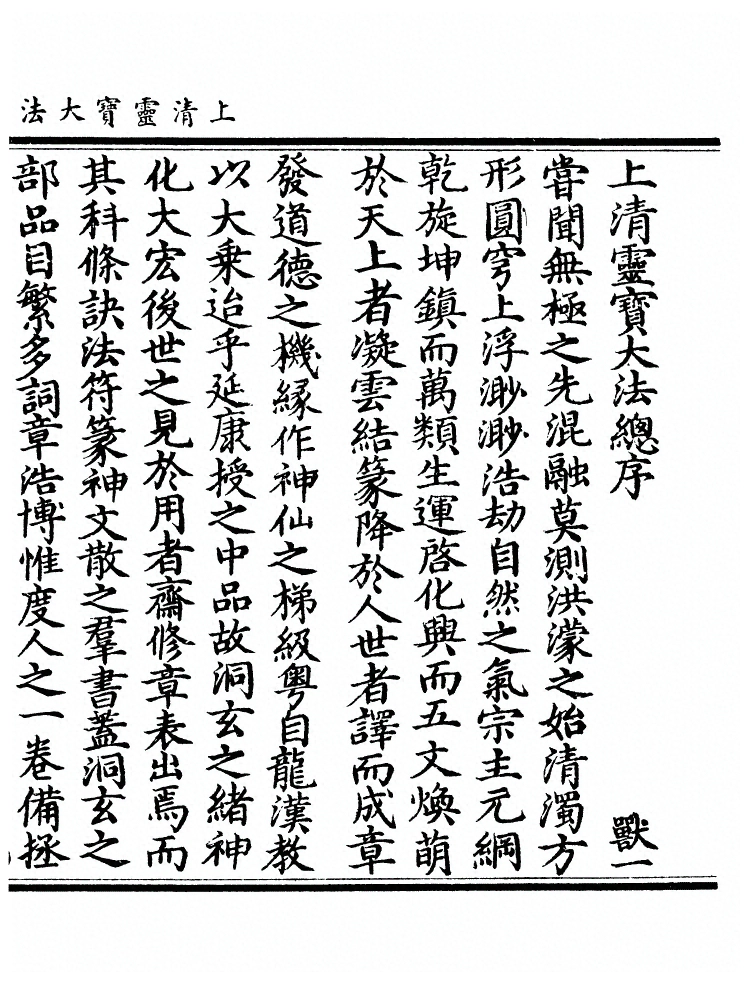 上清靈寶大法
上清靈寶大法總序　獸一
嘗聞無極之先混融莫測洪濛之始清濁方
形圓穹上浮渺渺浩劫自然之氣宗主元綱
乾旋坤鎮而萬類生運啓化興而五文煥萌
於天上者凝雲結篆降於人世者譯而成章
發道德之機緣作神仙之梯級粵自龍漢教
以大乗迨乎延康授之中品故洞玄之緒神
化大宏後世之見於用者齋修章表出焉而
其科條訣法符篆神文散之羣書蓋洞玄之
部品目繁多詞章浩博惟度人之一卷備拯